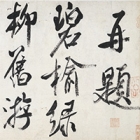 再題
碧榆綠
柳舊游